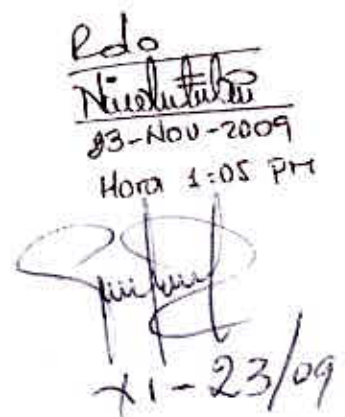 Rdo
23-Nov-2009
Hora 1:05 PM
XI-23/09